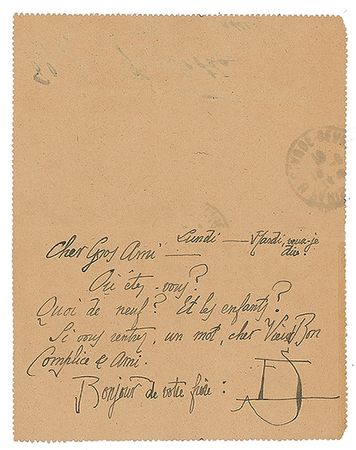 Cher Gros Ami — Lundi — Mardi, veux-je dire!
Où êtes-vous?
Quoi de neuf? Et les enfants?
Si vous rentrez, un mot, cher Vieux Bon
Complice & Ami.
Bonjour de votre frère:
ES